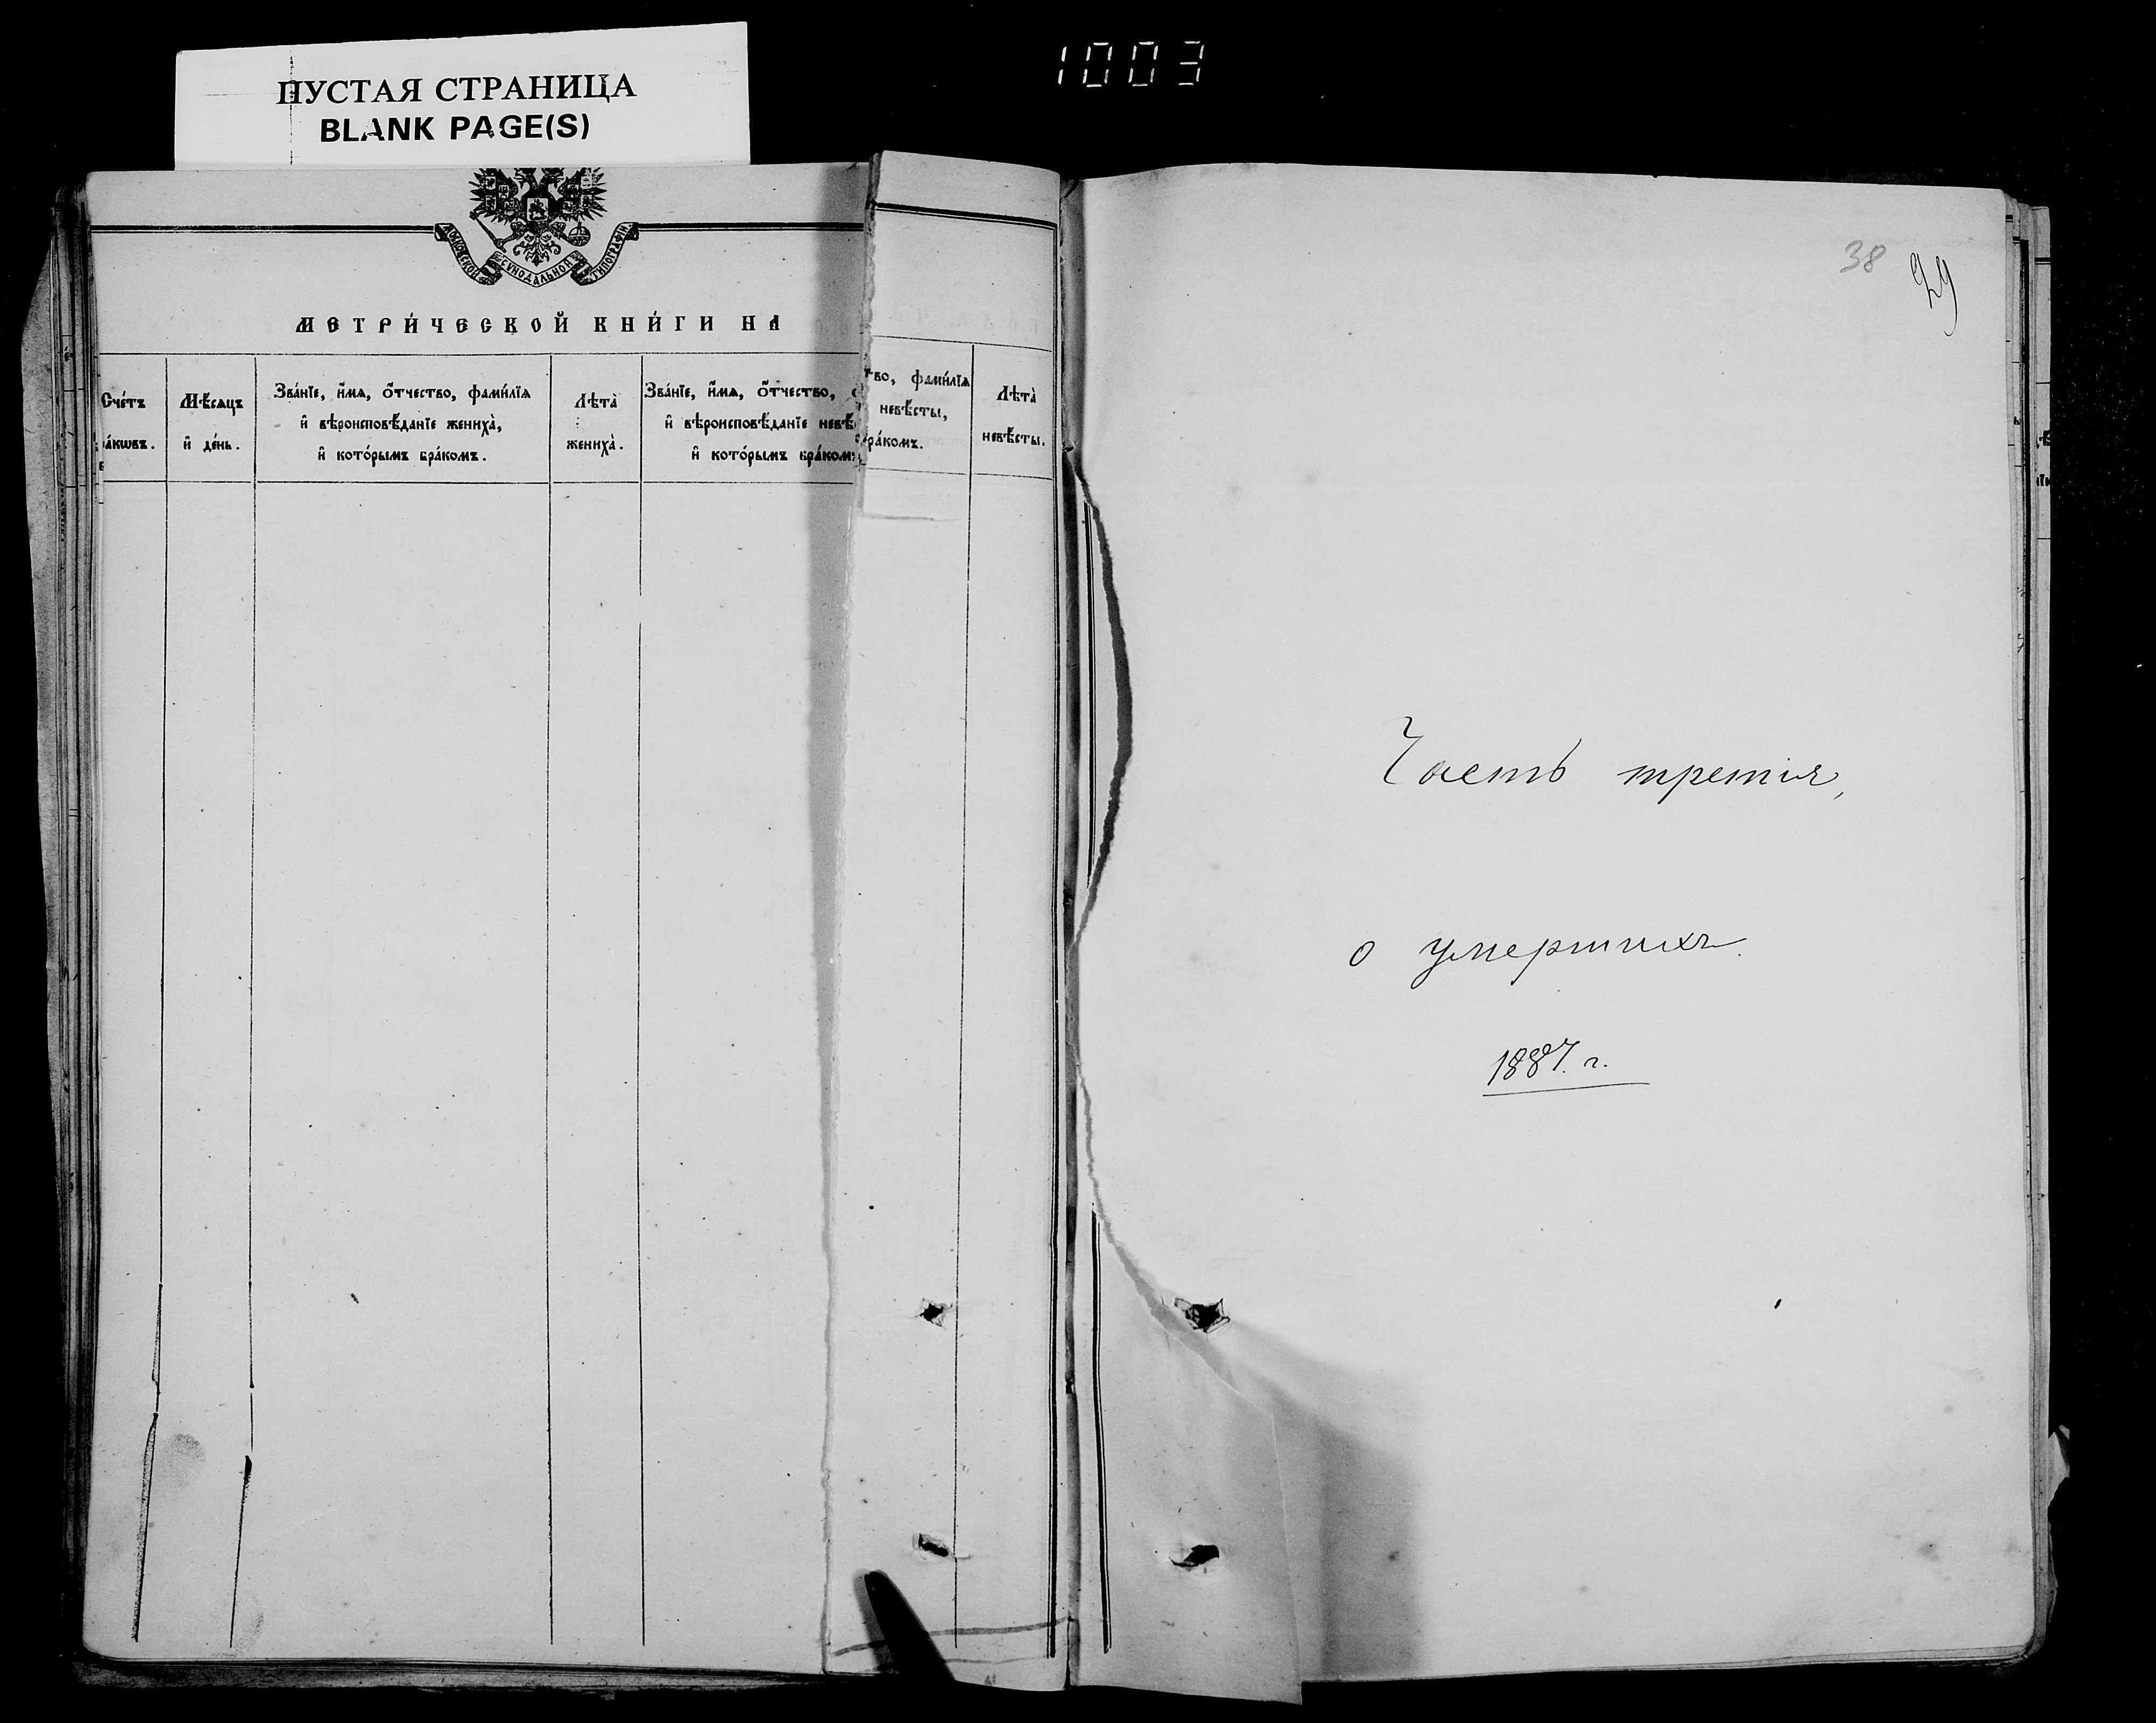 1003
ПУСТАЯ СТРАНИЦА
BLANK PAGE(S)
МОСКОВСКОЙ СѴНОДАЛЬНОЙ ТИПОГРАФІИ
МЕТРИ́ЧЕСКОЙ КНИ́ГИ НА
Сче́тъ
ра́кѡвъ.
Мѣ́сяцъ
и҆ де́нь.
Зва́нїе, и҆́мѧ, ѻ҆́тчество, фами́лїѧ
и҆ вѣроисповѣ́данїе жениха̀,
и҆ кото́рымъ бра́комъ.
Лѣта̀
жениха̀.
Зва́нїе, и҆́мѧ, ѻ҆́тчество,
и҆ вѣроисповѣ́данїе невѣ́
и҆ кото́рымъ бра́комъ
тво, фами́лїѧ
невѣ́сты,
бра́комъ.
Лѣта̀
невѣ́сты.
38 29
Часть третія,
о умершихъ.
1887. г.